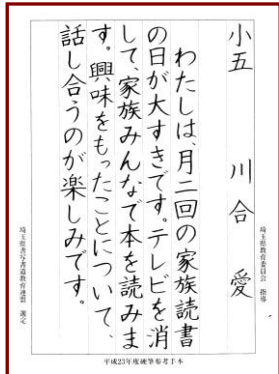 小五　川合　愛
わたしは、月二回の家族読書
の日が大すきです。テレビを消
して、家族みんなで本を読みま
す。興味をもったことについて、
話し合うのが楽しみです。
埼玉県教育委員会　指導
埼玉県書写書道教育連盟　選定
平成23年度硬筆参考手本